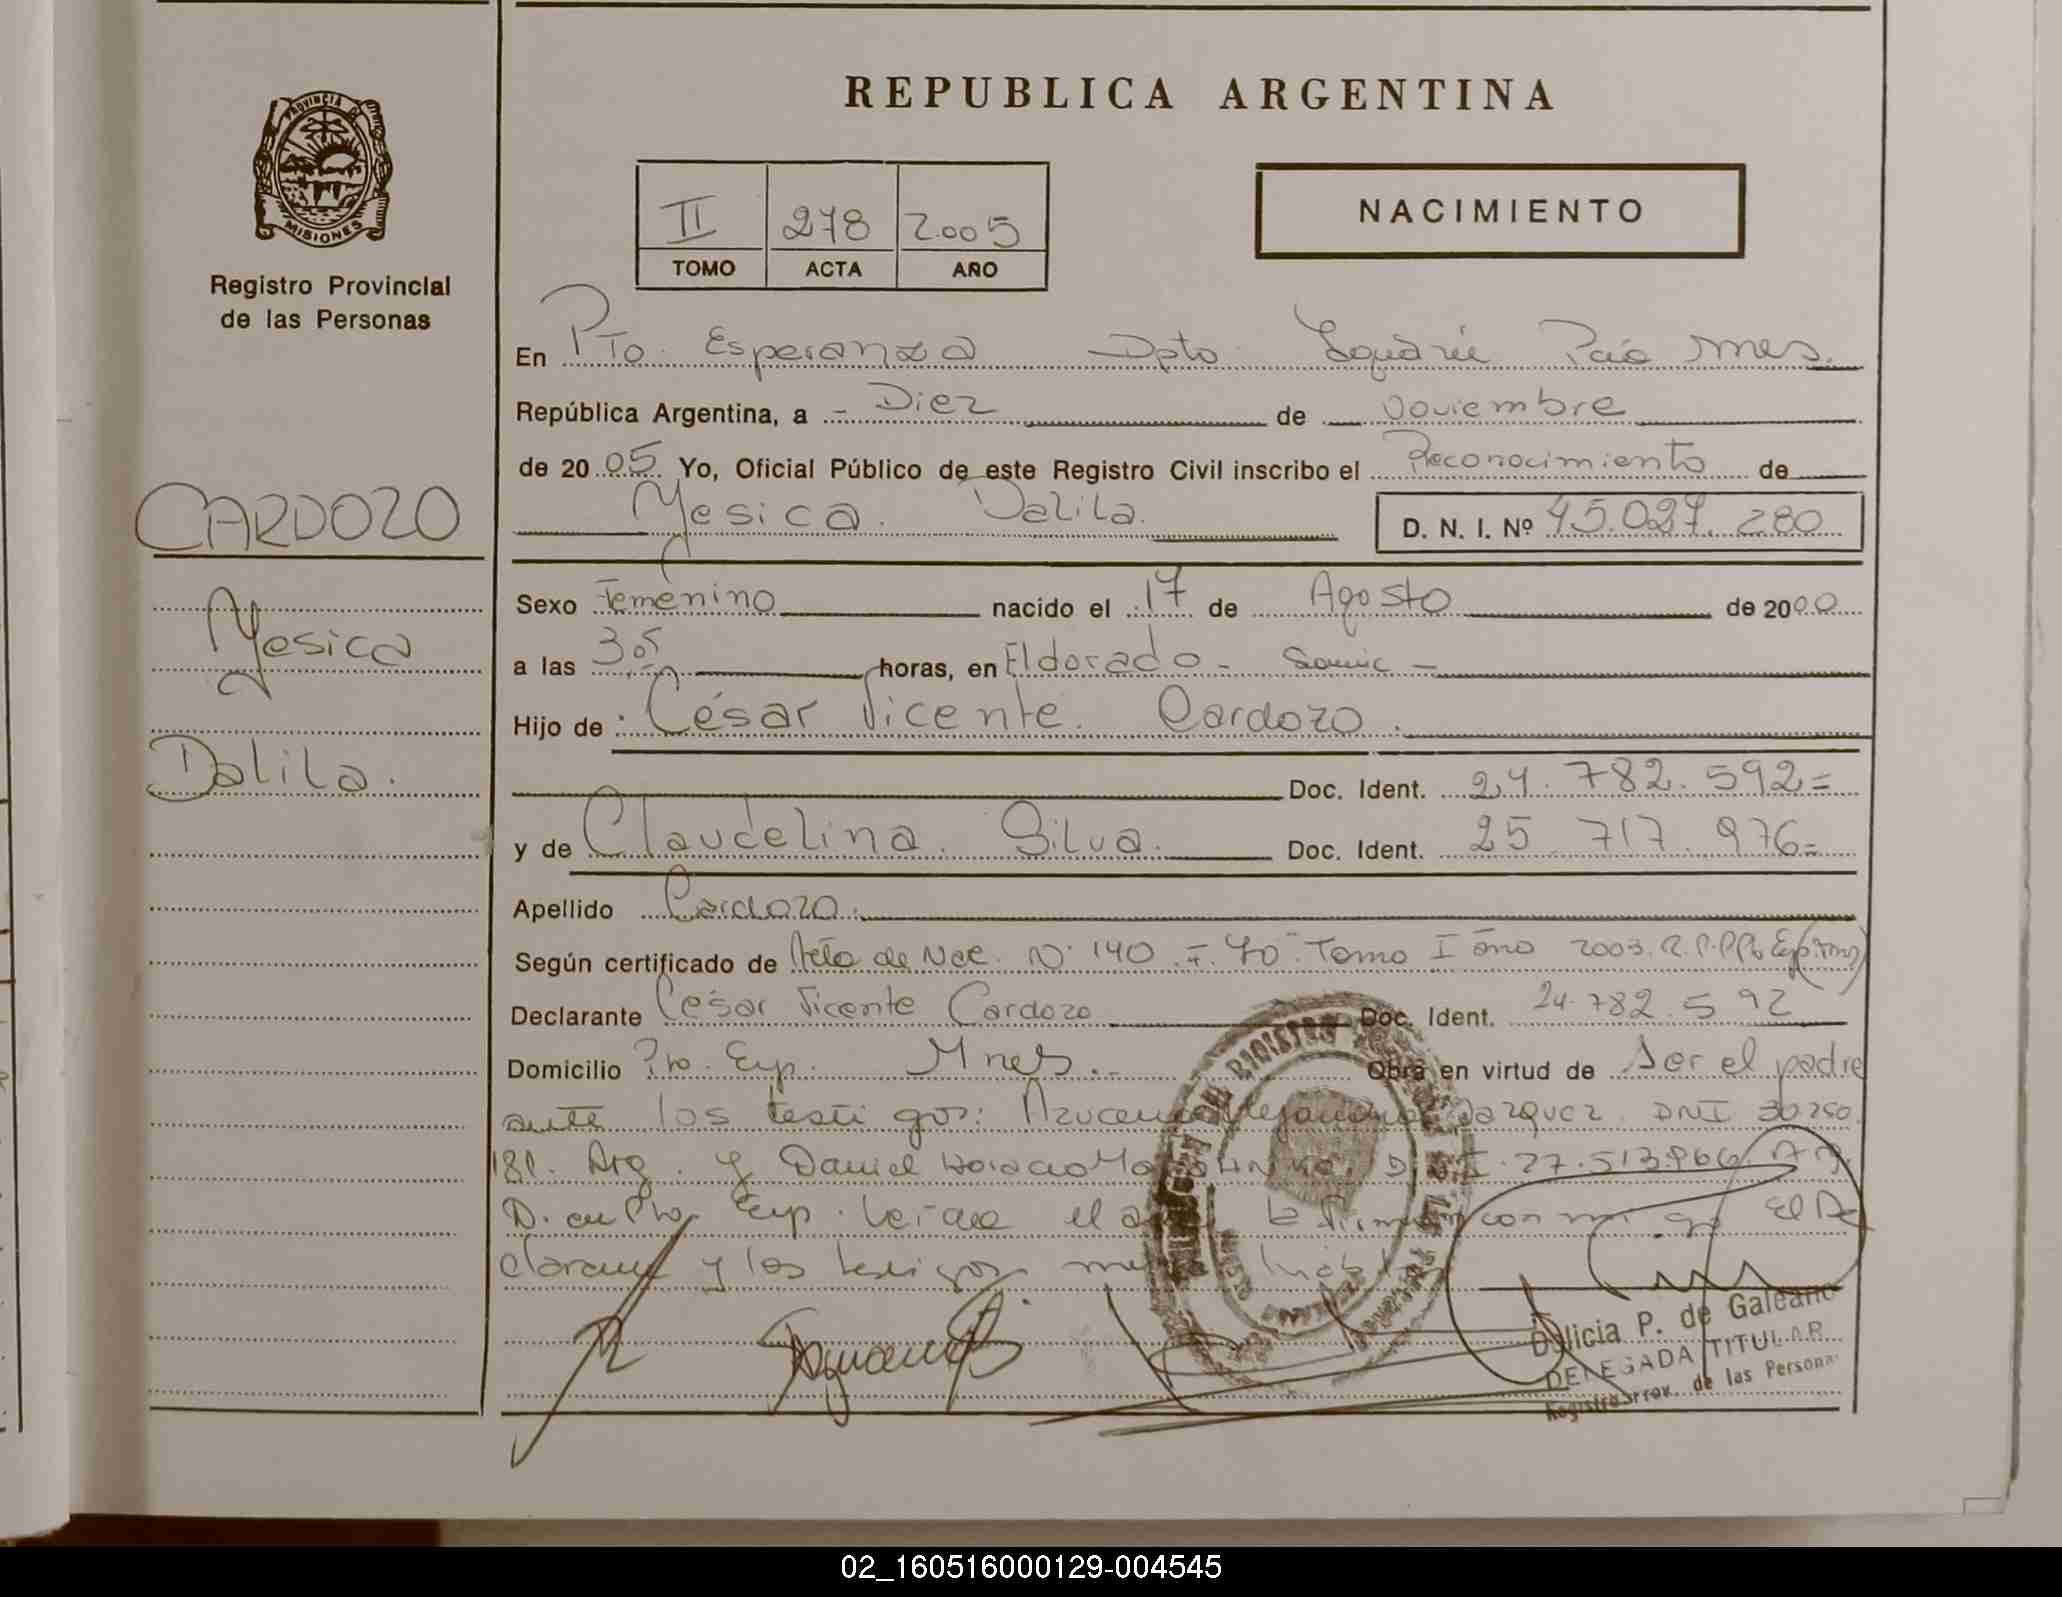 PROVINCIA DE
MISIONES
Registro Provincial
de las Personas
CARDOZO
Yesica
Dalila.
REPUBLICA ARGENTINA
II 278 2.005
TOMO ACTA AÑO
NACIMIENTO
En Pto. Esperanza Dpto. Iguazú Mnes.
República Argentina, a - Diez de Noviembre
de 20 05 Yo, Oficial Público de este Registro Civil inscribo el Reconocimiento de
Yesica Dalila. D. N. I. Nº 45.027.280
Sexo Femenino nacido el 17 de Agosto de 2000
a las 3 05 horas, en Eldorado - Samic -
Hijo de : César Vicente Cardozo.
Doc. Ident. 24.782.592=
y de Claudelina Silva. Doc. Ident. 25.717.976=
Apellido Cardozo.
Según certificado de Acta de Nac. Nº 140 F. 70 Tomo I año 2003. R.P.P. Pto Esp. (Mnes)
Declarante César Vicente Cardozo Doc. Ident. 24.782.592
Domicilio Pto. Esp. Mnes. Obra en virtud de Ser el padre
ante los testigos: Azucena Alejandra Vazquez DNI 30250
181. Arg. y Daniel Horacio D.N.I. 27.513.966 Arg.
D. en Pto. Esp. Leída el acta la firman conmigo El De
clarante y los testigos
Delicia P. de Galeano
DELEGADA TITULAR
Registro Prov. de las Personas
02_160516000129-004545